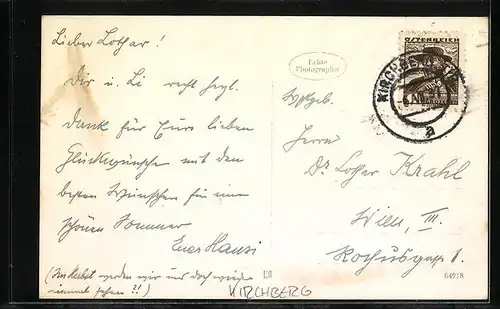 Lieber Lothar!
Dir u. Li recht herzl.
Dank für Eure lieben
Glückwünsche mit den
besten Wünschen für einen
schönen Sommer
Euer Hansi
(Im Herbst werden wir uns doch wieder
einmal sehen?!)
Echte
Photographie
ÖSTERREICH
KIRCHBERG
a
Wohlgeb.
Herrn
Dr Lothar Krahl
Wien, III.
Rochusgasse 1.
64928
KIRCHBERG